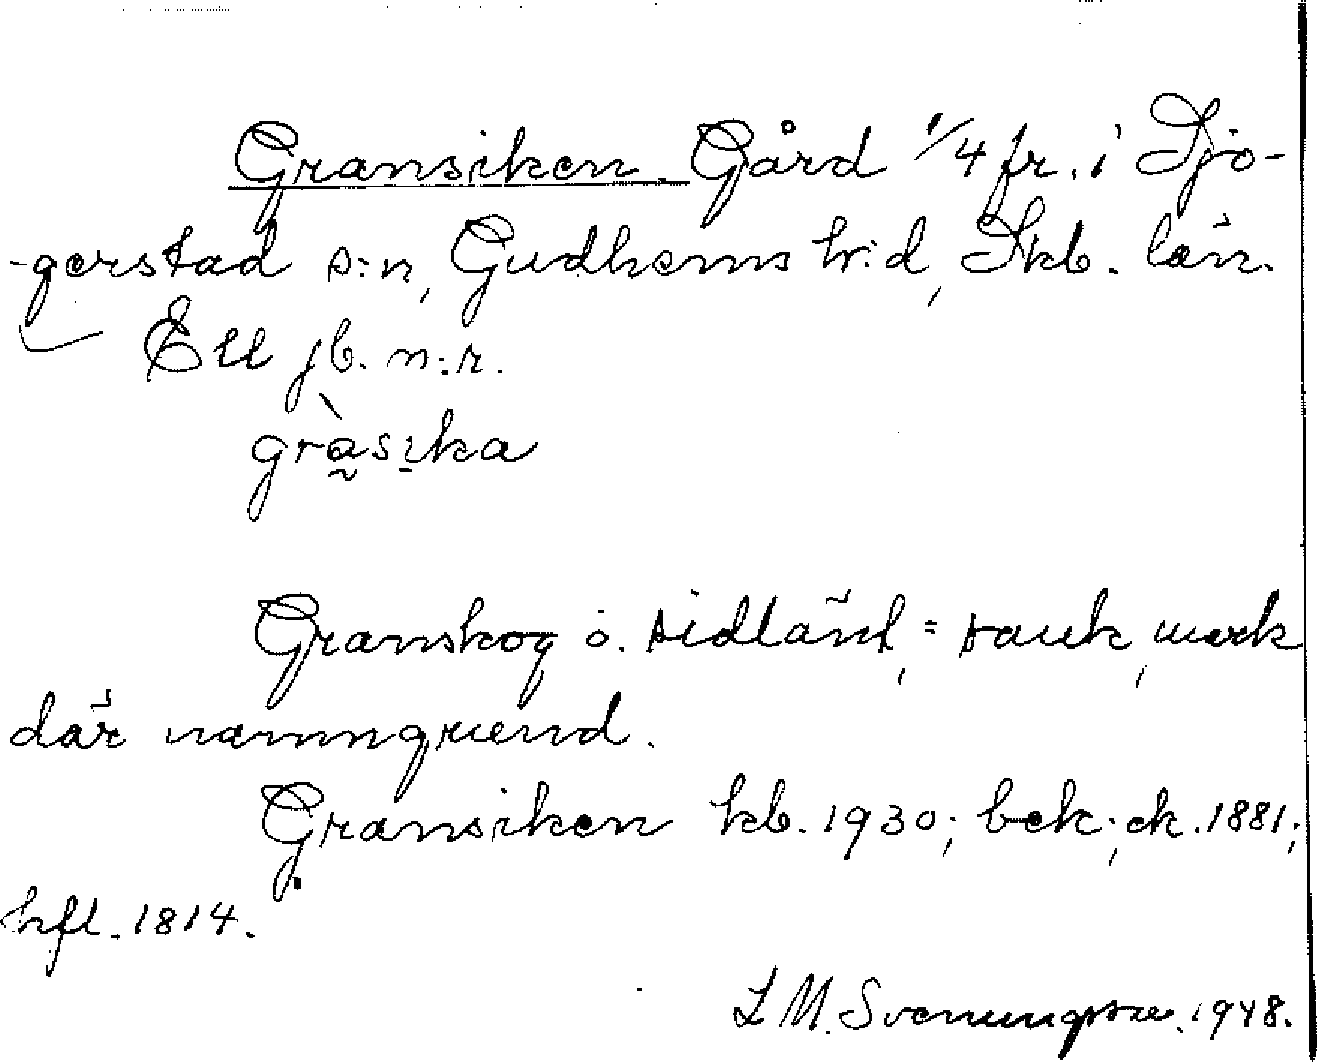 Gransiken. Gård 1/4 fr. i Sjo-
-gerstad s:n, Gudhems h:d, Skb. län.
Ett jb. n:r.
gràsika
Granskog o. sidländ, = sank, mark
där namngivend.
Gransiken kb. 1930; bek; ek. 1881;
hfl. 1814.
L M. Svenungsson. 1948.